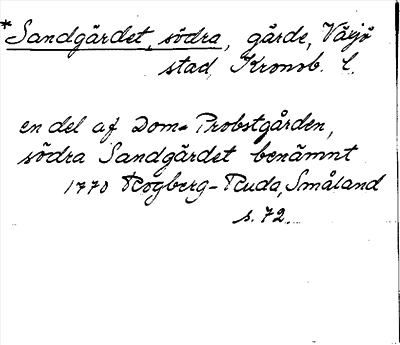 *Sandgärdet, södra, gärde, Växjö
stad, Kronob. l.
en del af Dom-Probstgården,
södra Sandgärdet benämnt
1770 Rogberg-Ruda, Småland
s. 72.